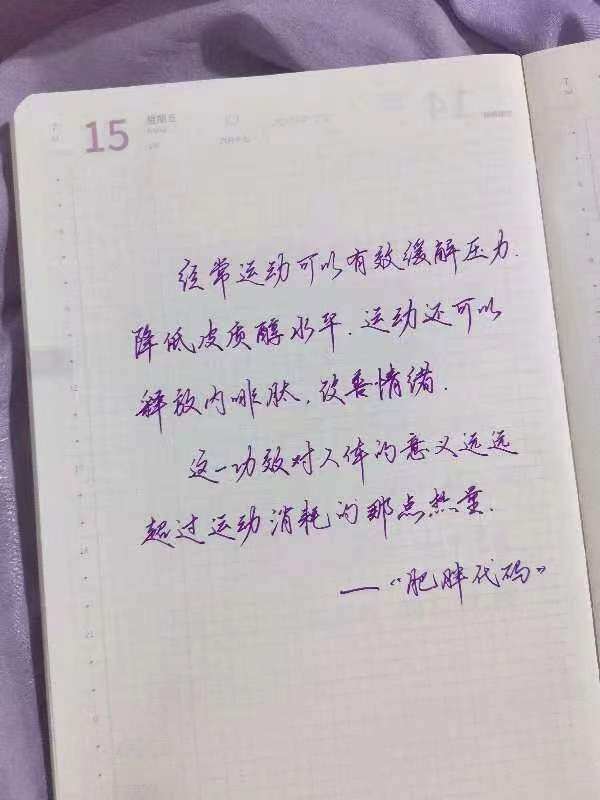 15
星期五
经常运动可以有效缓解压力.
降低皮质醇水平.运动还可以
释放内啡肽,改善情绪.
这一功效对人体的意义远远
超过运动消耗的那点热量.
—“肥胖代码”